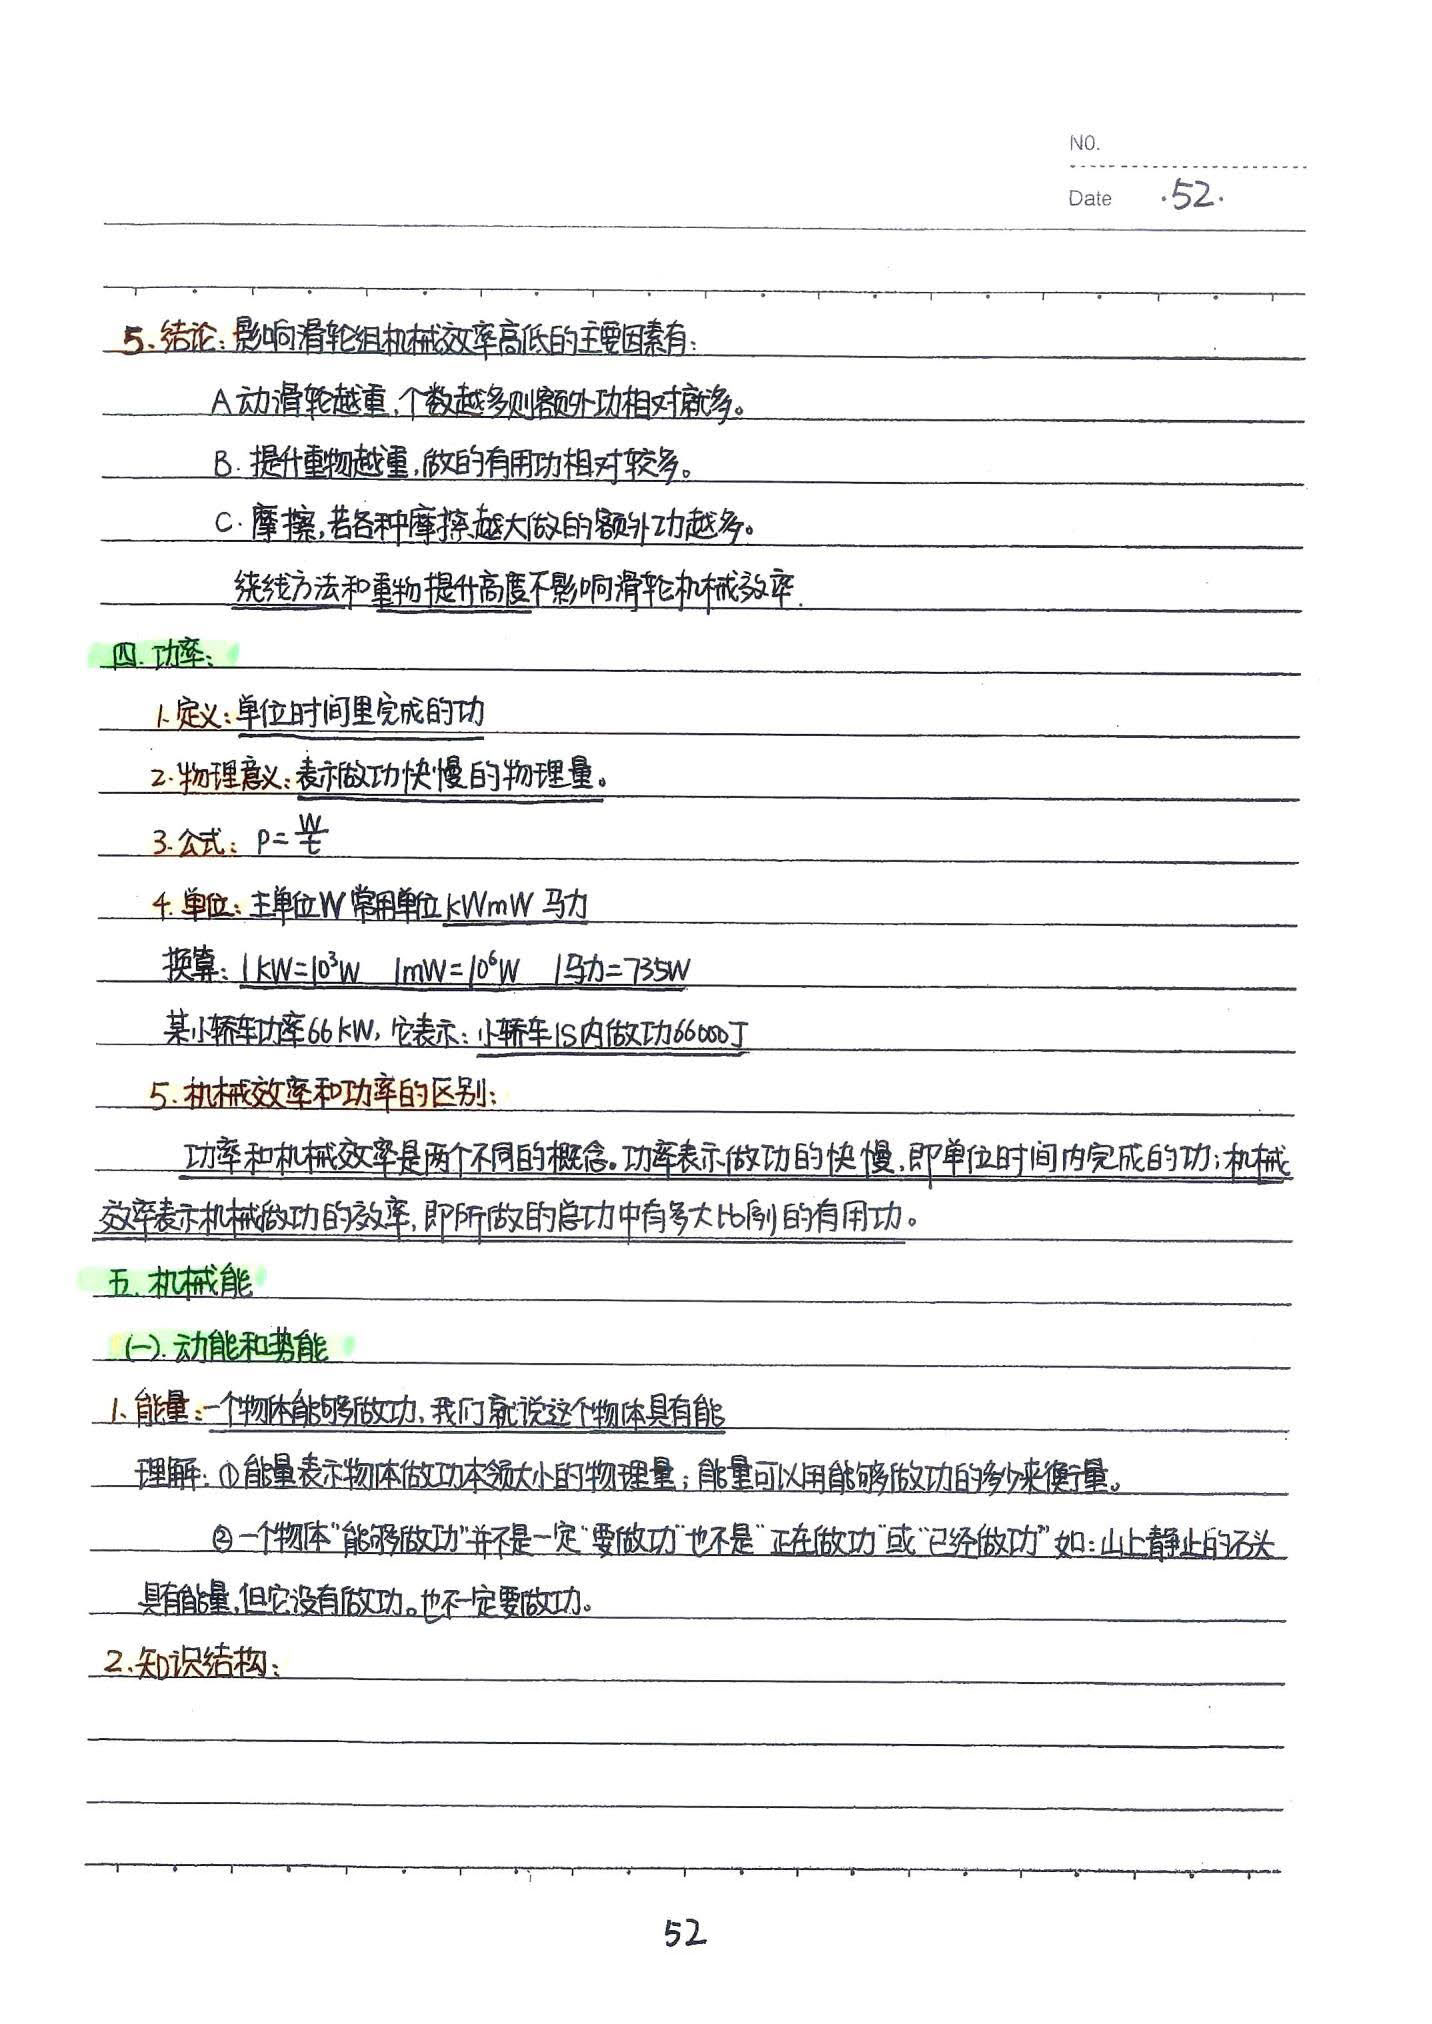 NO.
Date ·52·
5.结论:影响滑轮组机械效率高低的主要因素有:
A动滑轮越重,个数越多则额外功相对就多。
B.提升重物越重,做的有用功相对较多。
C.摩擦,若各种摩擦越大做的额外功越多。
绕线方法和重物提升高度不影响滑轮机械效率.
四.功率:
1.定义:单位时间里完成的功
2.物理意义:表示做功快慢的物理量。
3.公式: P=W/t
4.单位:主单位W 常用单位kWmW 马力
换算:1kW=10³W 1mW=10⁶W 1马力=735W
某小轿车功率66kW,它表示:小轿车1S内做功66000J
5.机械效率和功率的区别:
功率和机械效率是两个不同的概念。功率表示做功的快慢,即单位时间内完成的功;机械
效率表示机械做功的效率,即所做的总功中有多大比例的有用功。
五.机械能
(一).动能和势能
1.能量:一个物体能够做功,我们就说这个物体具有能
理解:①能量表示物体做功本领大小的物理量;能量可以用能够做功的多少来衡量。
②一个物体"能够做功"并不是一定"要做功"也不是"正在做功"或"已经做功"如:山上静止的石头
具有能量,但它没有做功。也不一定要做功。
2.知识结构:
52